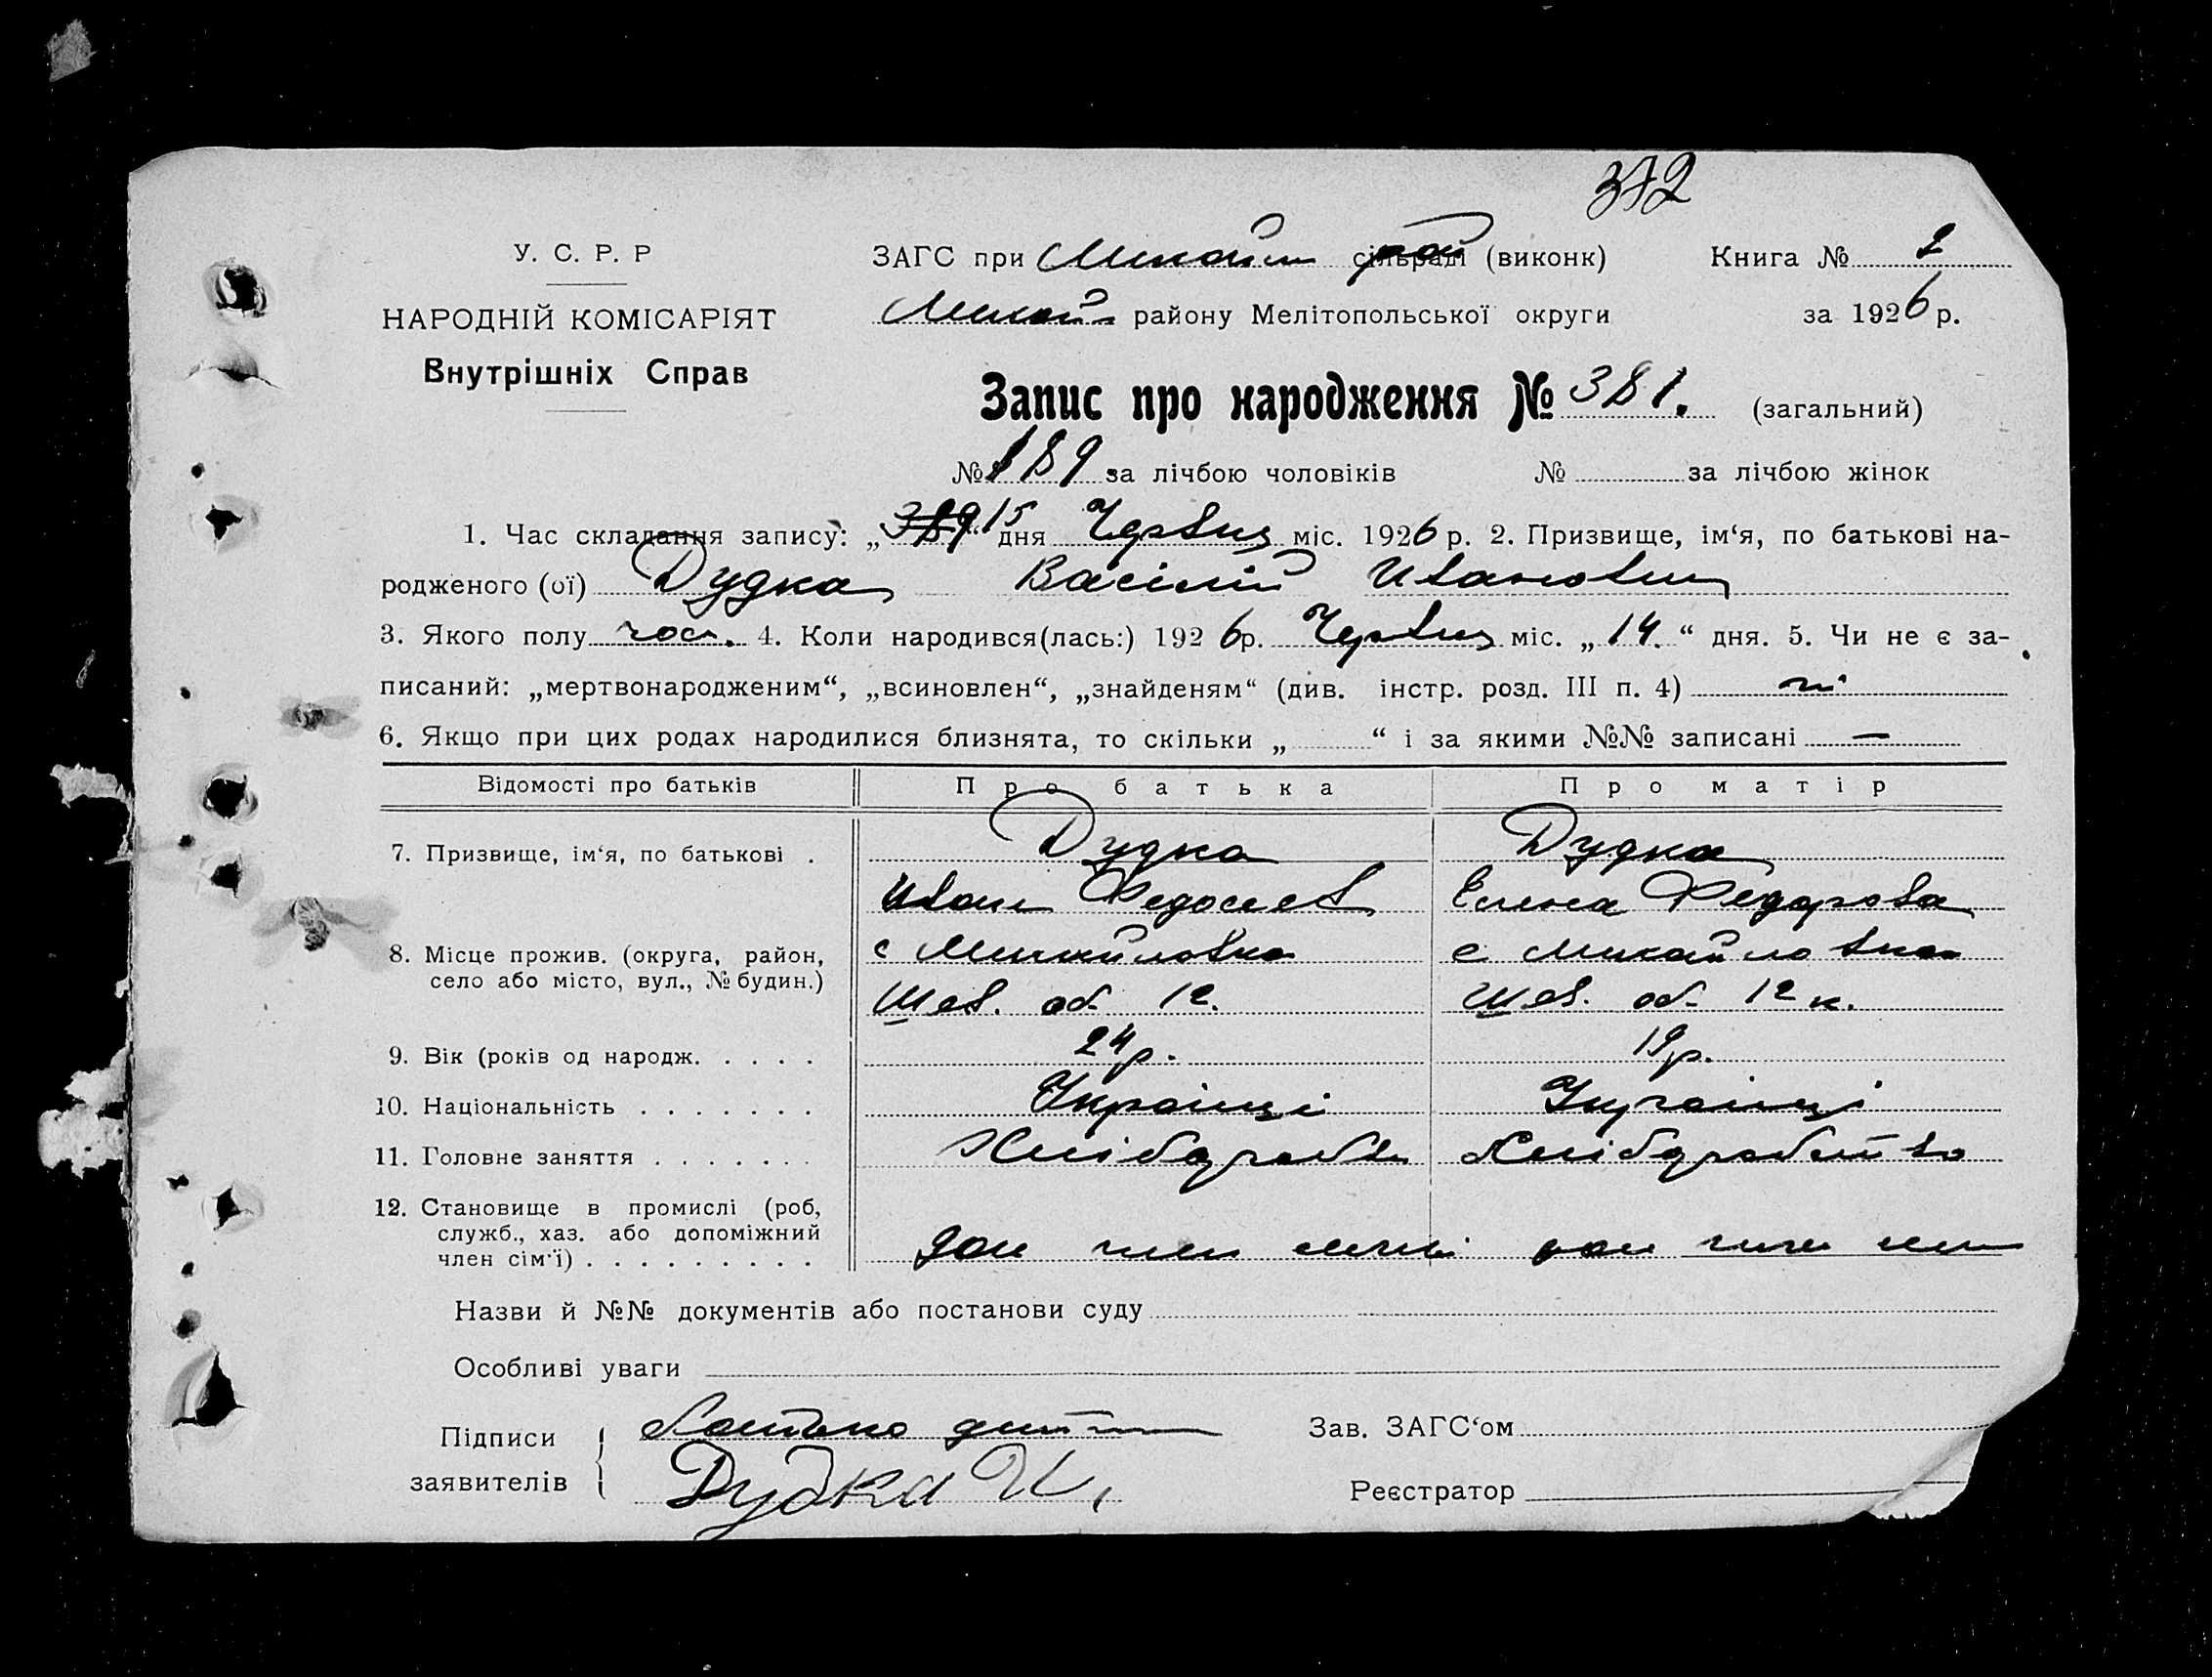 372
У. С. Р. Р
НАРОДНІЙ КОМІСАРІЯТ
Внутрішніх Справ
ЗАГС при Михайл сільраді рай (виконк) Книга № 2
Михай району Мелітопольської округи за 1926 р.
Запис про народження № 381. (загальний)
№ 189 за лічбою чоловіків № за лічбою жінок
1. Час складання запису: „389“ 15 дня Червня міс. 1926 р. 2. Призвище, ім‘я, по батькові на-
родженого (ої) Дудка Васілій Иванович
3. Якого полу чол. 4. Коли народився(лась:) 1926р. Червня міс. „14.“ дня. 5. Чи не є за-
писаний: „мертвонародженим“, „всиновлен“, „знайденям“ (див. інстр. розд. III п. 4) ні
6. Якщо при цих родах народилися близнята, то скільки „ “ і за якими №№ записані —
Відомості про батьків Про батька Про матір
7. Призвище, ім‘я, по батькові . Дудка Дудка
Иван Федосеев Елена Федорова
8. Місце прожив. (округа, район, с Михайловка с Михайловка
село або місто, вул., № будин.) Шев. об. 12. Шев. об. 12 к.
9. Вік (років од народж. . . . . 24р. 19р.
10. Національність . . . . . . . Українці Українці
11. Головне заняття . . . . . . . Хліборобств Хліборобство
12. Становище в промислі (роб,
служб., хаз. або допоміжний
член сім‘ї) . . . . . . . . . доп член семьи доп член сем
Назви й №№ документів або постанови суду
Особливі уваги
Підписи Батько дит Зав. ЗАГС‘ом
заявителів Дудка И, Реєстратор